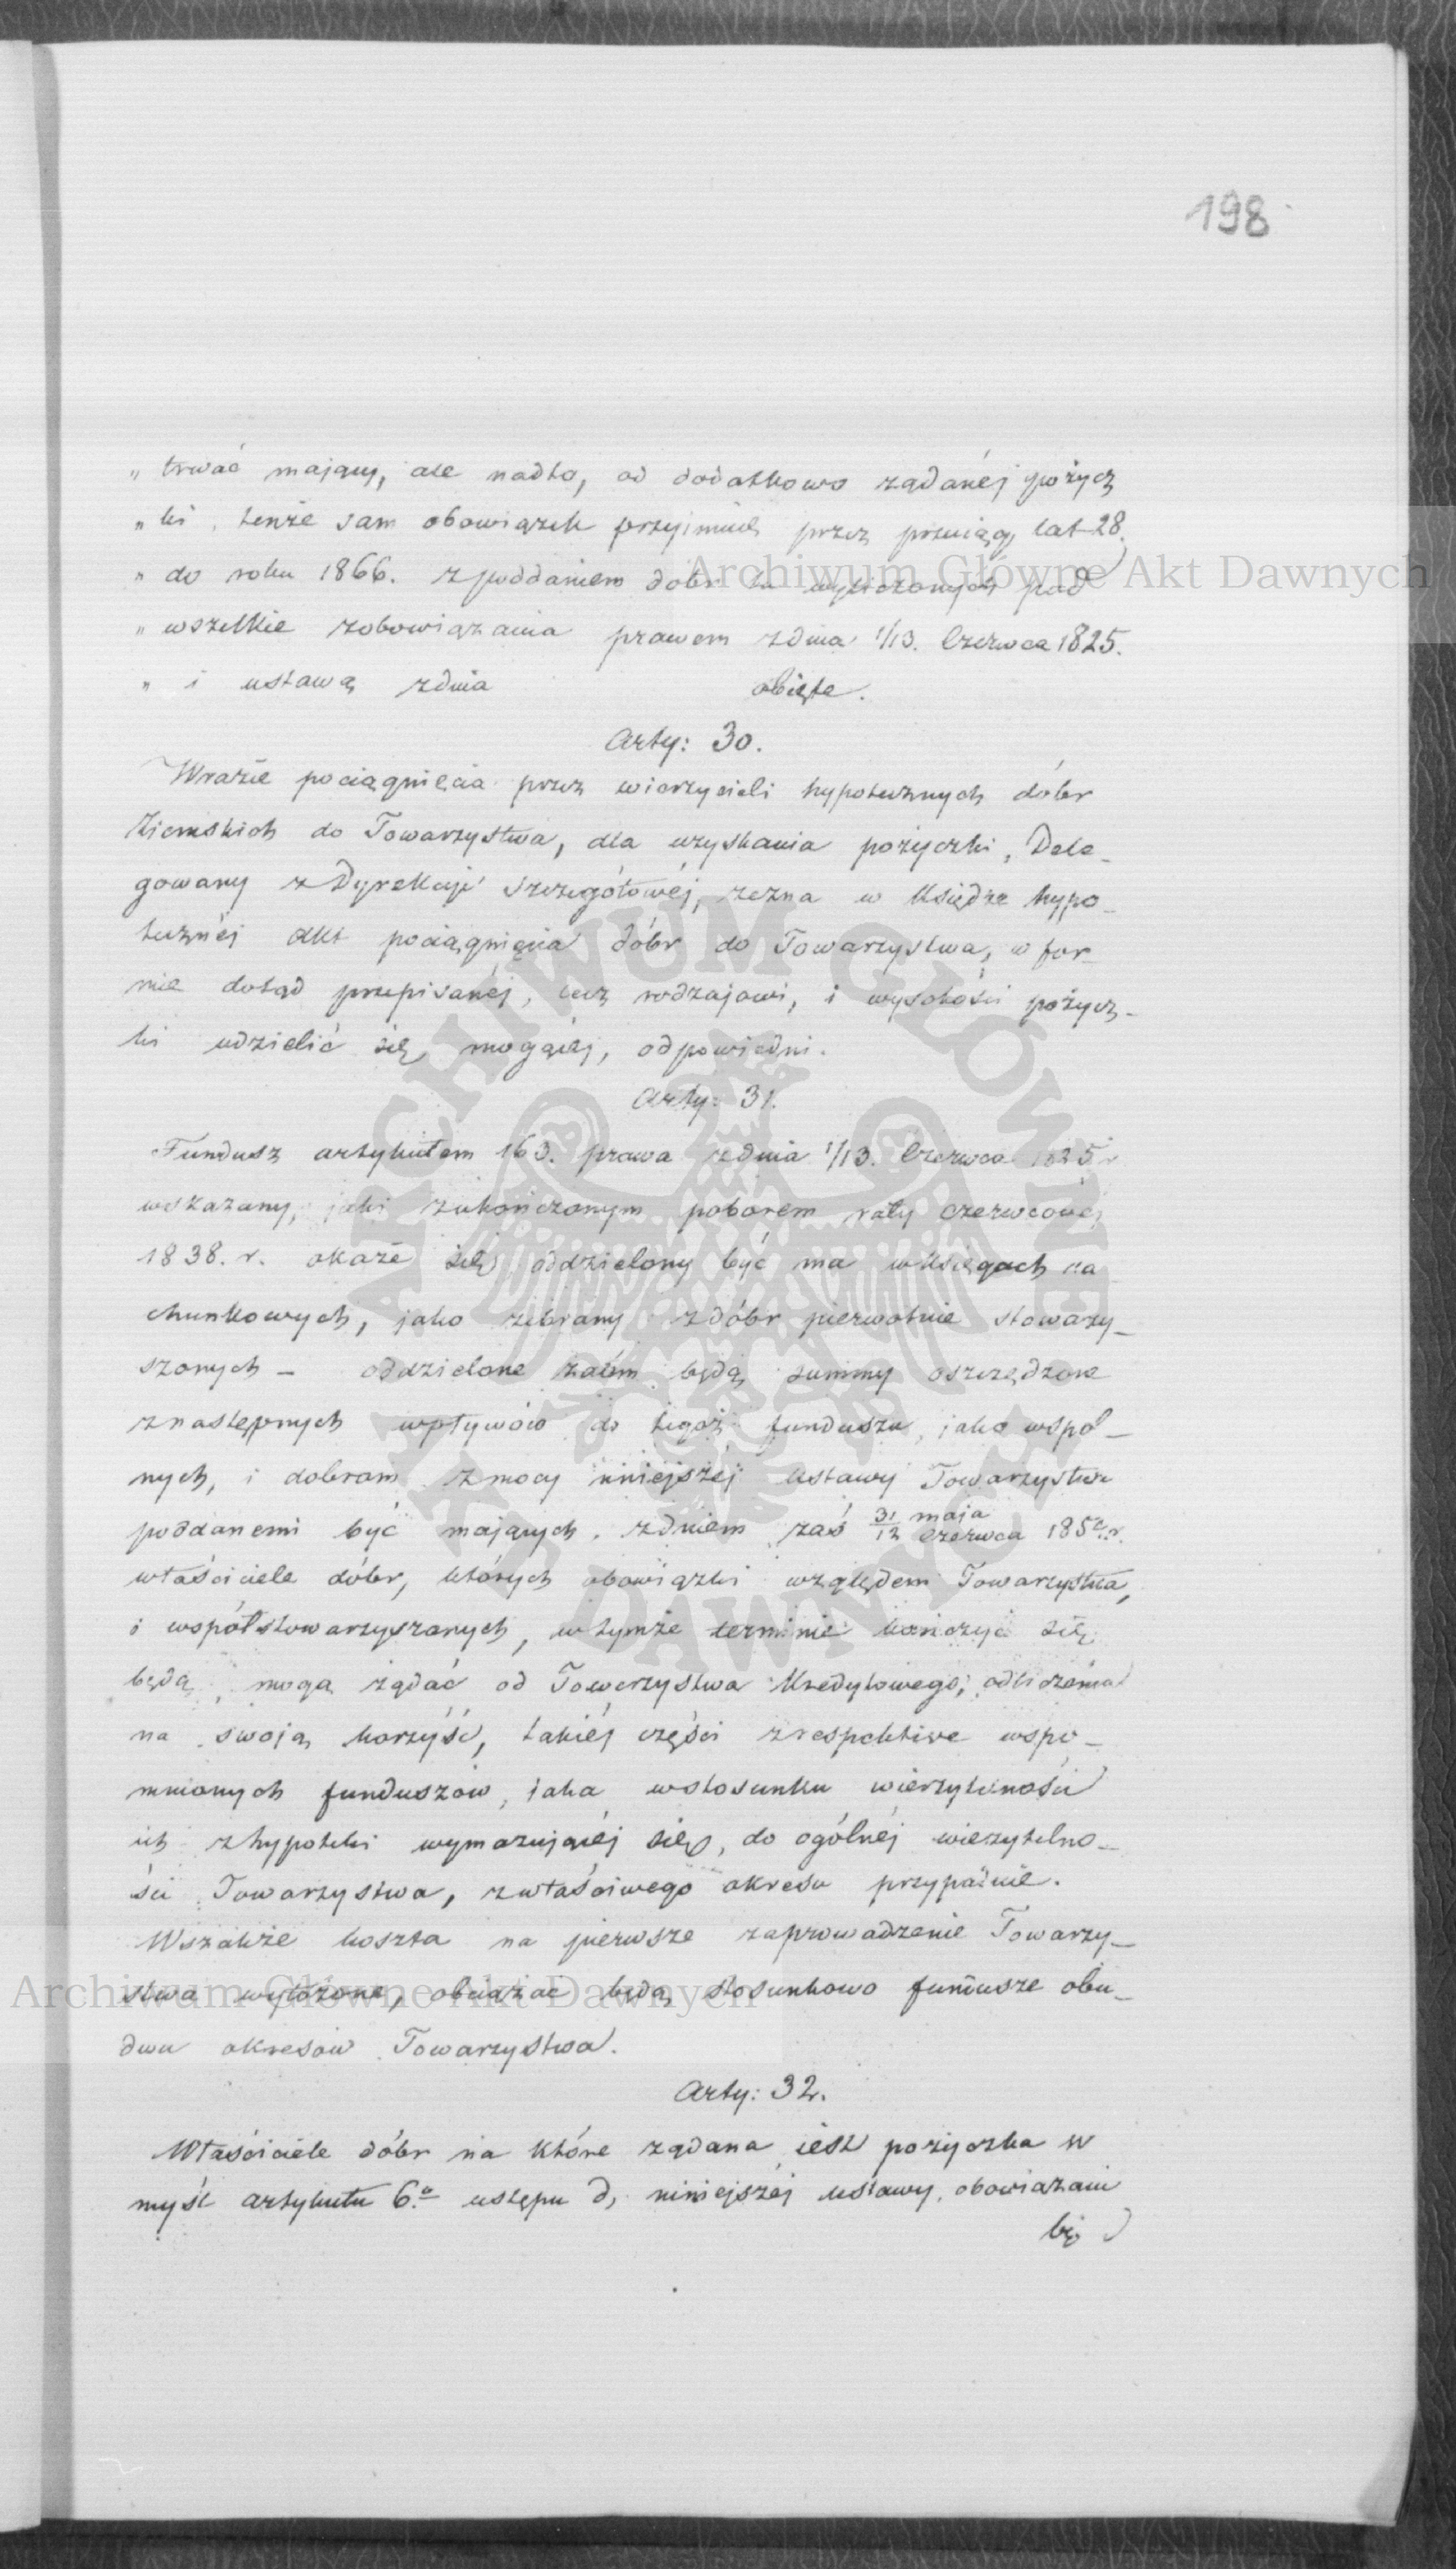 198
„ trwać mający, ale nadto, od dodatkowo żądanéj pożycz
„ ki, tenże sam obowiązek przyjmuie przez przeciąg lat 28.
„ do roku 1866. z poddaniem dóbr tu wyliczonych pod
„ wszelkie zobowiązania prawem zdnia 1/13. Czerwca 1825.
„ i ustawą zdnia obięte.
Arty: 30.
Wrazie pociągnięcia przez wierzycieli hypotecznych dóbr
Ziemskich do Towarzystwa, dla uzyskania pożyczki, Dele-
gowany z Dyrekcyi Szczegółowéj, zezna w Księdze hypo-
tecznéj akt pociągnięcia dóbr do Towarzystwa, w for-
mie dotąd przepisanéj, lecz rodzajowi, i wysokości pożycz-
ki udzielić się mogącéj, odpowiedni.
Arty: 31.
Fundusz artykułem 163. prawa zdnia 1/13. Czerwca 1825 r
wskazany, jaki zukończonym poborem raty czerwcowéj
1838. r. okaże się, oddzielony być ma wksięgach ra
chunkowych, jako zebrany zdóbr pierwotnie stowarzy-
szonych – oddzielone zatém będą summy oszczędzone
znastępnych wpływów do tegoż funduszu, jako wspól-
nych, i dobrom zmocy niniejszéj Ustawy Towarzystwu
poddanemi być mających. zdniem zaś 31/12 maja/czerwca 185 r.
właściciele dóbr, których obowiązki względem Towarzystwa,
i współstowarzyszonych, wtymże terminie kończyć się
będą, mogą żądać od Towarzystwa Kredytowego, odliczenia
na swoją korzyść, takiéj części zrespektive wspo-
mnionych funduszów, jaka wstosunku wierzytelności
ich zhypoteki wymazującéj się, do ogólnéj wierzytelno-
ści Towarzystwa, zwłaściwego okresu przypadnie.
Wszakże koszta na pierwsze zaprowadzenie Towarzy-
stwa wyłożone, obciążać będą stosunkowo fundusze obu-
dwu okresów Towarzystwa.
Arty: 32.
Właściciele dóbr na które żądana iest pożyczka w
myśl artykułu 6.º ustępu d, niniejszéj ustawy, obowiązani
bę
Archiwum Główne Akt Dawnych
ARCHIWUM GŁÓWNE
AKT DAWNYCH
Archiwum Główne Akt Dawnych